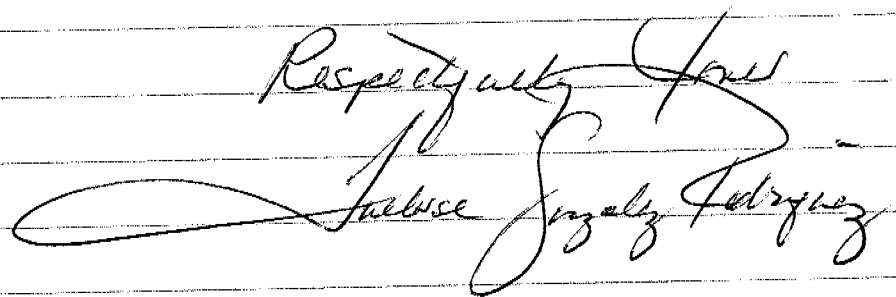 Respectfully Yours
González Rodríguez